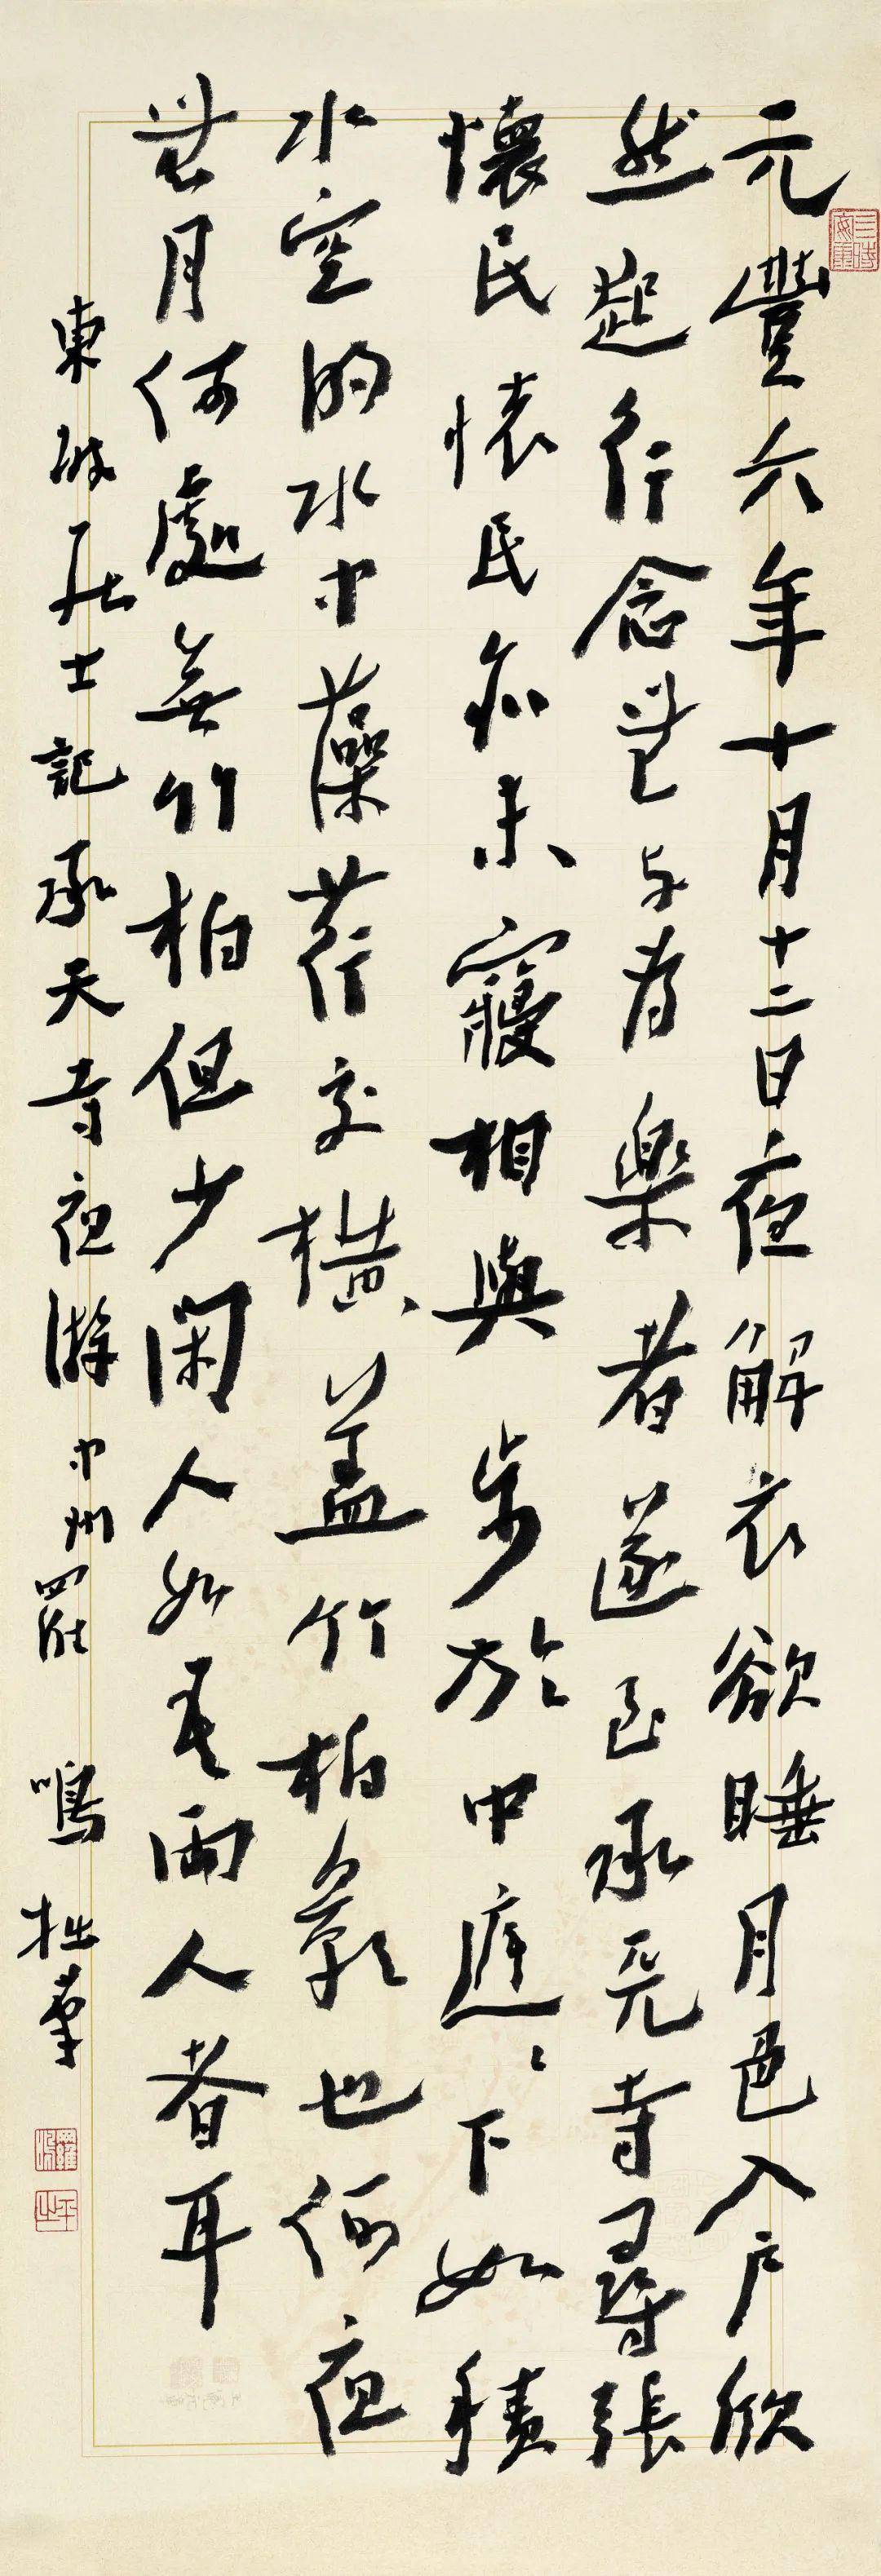 元豐六年十月十二日夜解衣欲睡月色入户欣
然起行念無与為樂者遂至承天寺尋張
懷民懷民亦未寢相與步於中庭〻下如積
水空明水中藻荇交橫盖竹柏影也何夜
無月何處無竹柏但少閑人如吾兩人者耳
東坡居士記承天寺夜游 中州羅鳴拙筆
羅鳴